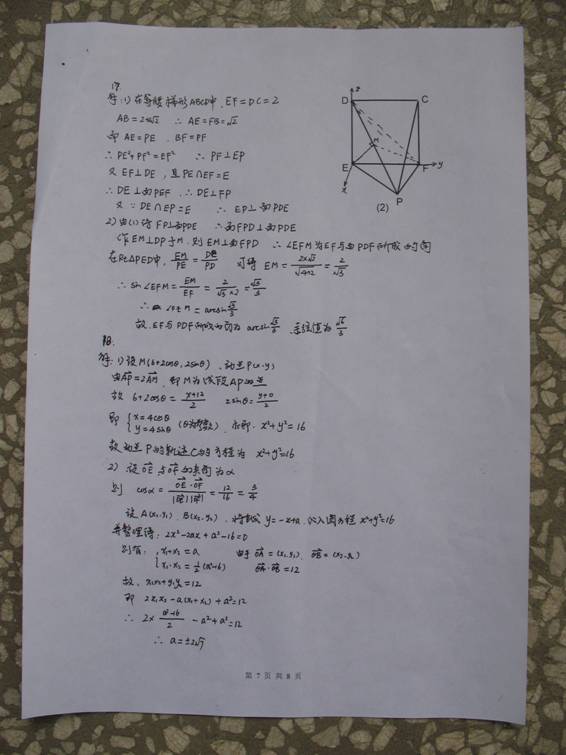 17.
解: 1) 在等腰梯形ABCD中, EF=DC=2
AB=2+2√2 ∴AE=FB=√2
即 AE=PE, BF=PF
∴PE²+PF²=EF² ∴PF⊥EP
又EF⊥DE, 且PE∩EF=E
∴DE⊥面PEF, ∴DE⊥FP
又∵DE∩EP=E ∴ EP⊥面PDE
2) 由(1)得 FP⊥面PDE ∴面FPD⊥面PDE
作EM⊥DP于M, 则EM⊥面FPD ∴∠EFM为EF与面PDF所成的角
在Rt△PED中, EM/PE = DE/PD 可得 EM =
∴ sin∠EFM = EM/EF =
故, EF与PDF所成的角为 arcsin
18.
解: 1) 设M(6+2cosθ, 2sinθ), 动点P(x·y)
由AP=2AM, 即M为线段AP的中点
故 6+2cosθ = (x+12)/2 2sinθ = (y+0)/2
即 { x=4cosθ
y=4sinθ (θ为参数), 亦即: x²+y²=16
故动点P的轨迹C的方程为 x²+y²=16
2) 设OE与OF的夹角为α
则 cosα = OE·OF/|OE||OF| = 12/16 = 3/4
设A(x₁·y₁), B(x₂·y₂), 将 y=-x+a 代入圆方程x²+y²=16
并整理得: 2x²-2ax+a²-16=0
则有: { x₁+x₂=a 由于 OA=(x₁,y₁), OB=(x₂·y₂)
x₁·x₂=½(a²-16) OA·OB=12
故, x₁x₂+y₁y₂=12
即 2x₁x₂-a(x₁+x₂)+a²=12
∴ 2×(a²-16)/2 -a²+a²=12
∴ a=±2√7
z
D
C
M
E
F
y
x
P
(2)
第 7 页 共 8 页